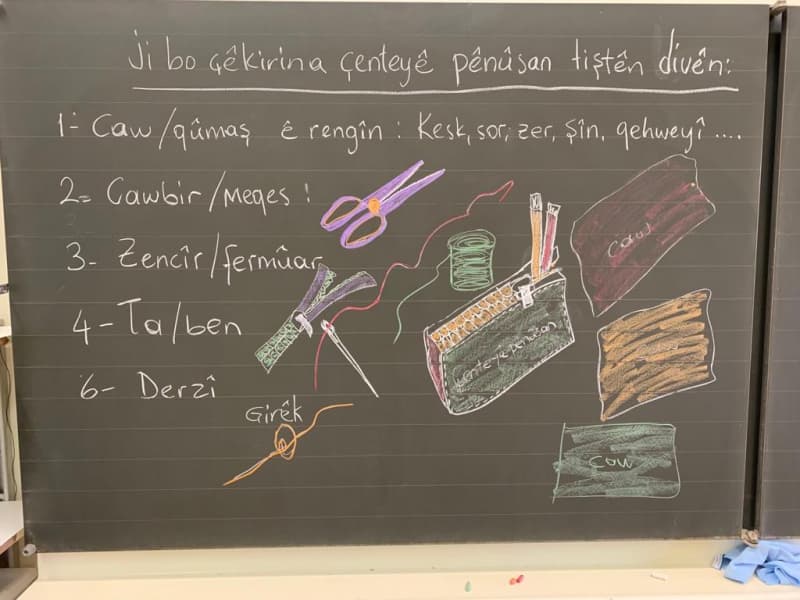 Ji bo çêkirina çenteyê pênûsan tiştên divên:
1- Caw/qûmaş ê rengîn : Kesk, sor, zer, Şîn, qehweyî ....
2= Cawbir/Meqes :
3- Zencîr/fermûar
4- Ta/ben
6- Derzî
Girêk
Çenteyê pênûsan
caw
caw